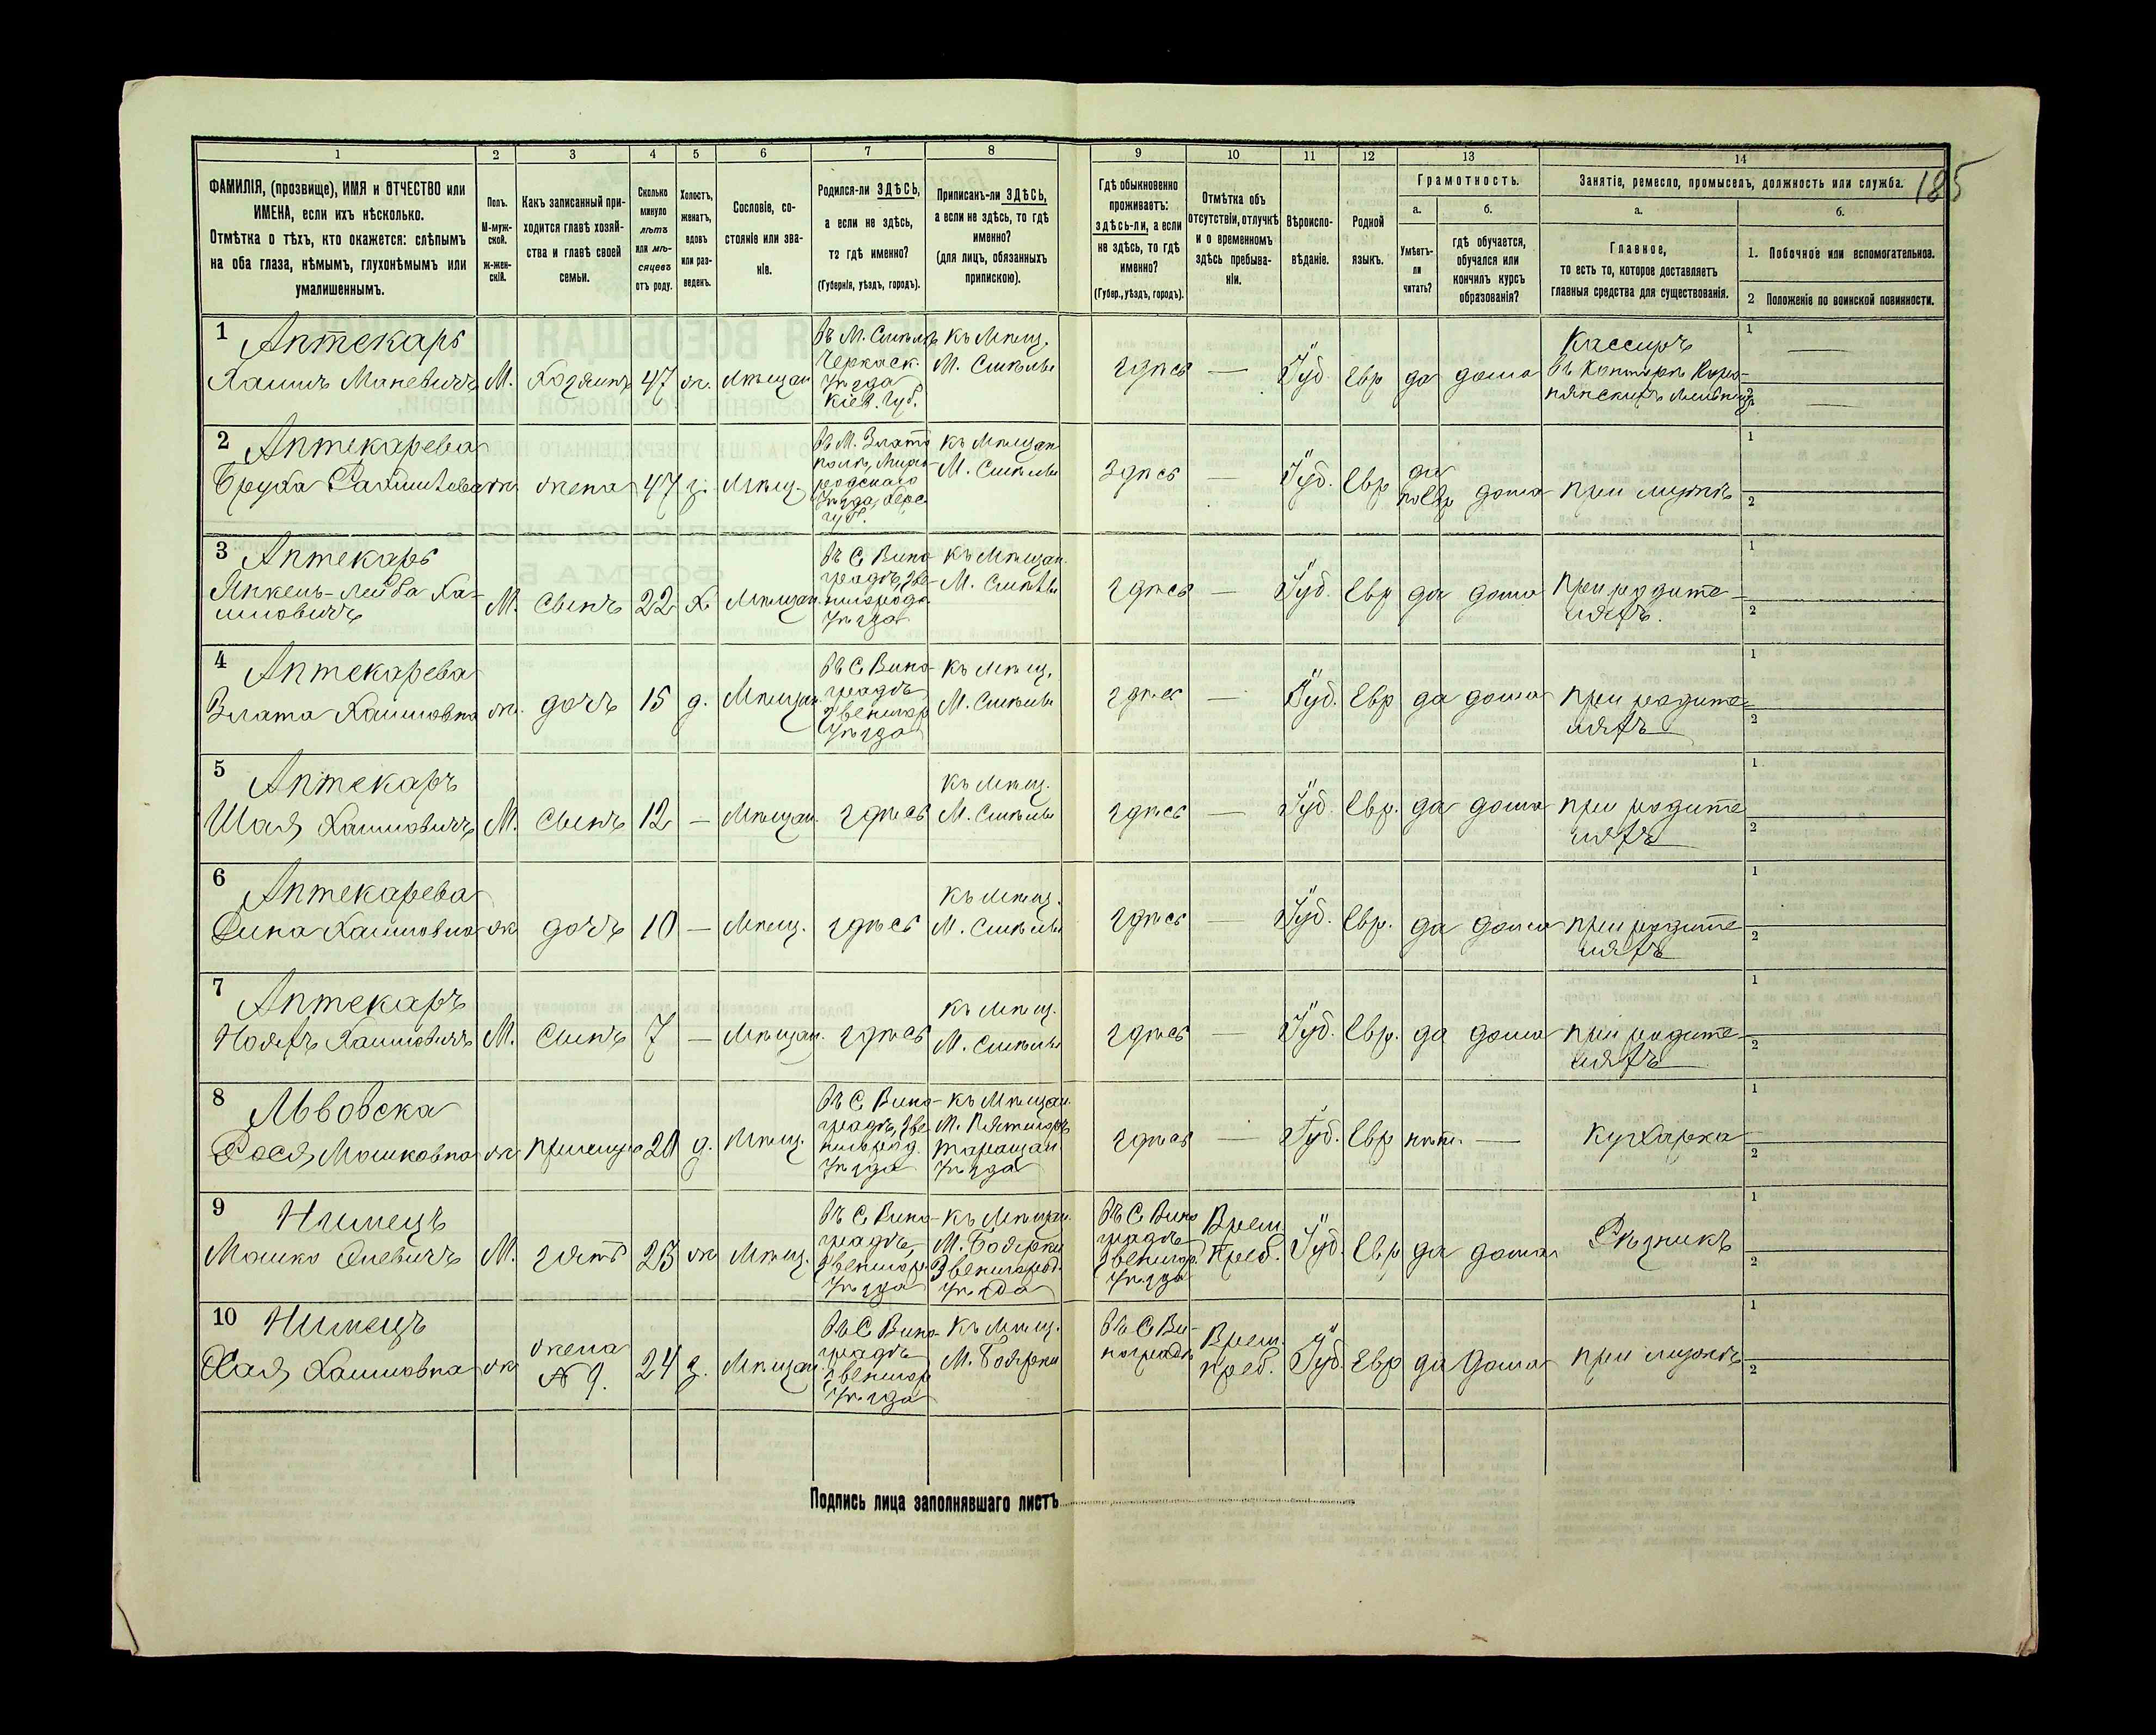 185
1 2 3 4 5 6 7 8 9 10 11 12 13 14
ФАМИЛІЯ, (прозвище), ИМЯ и ОТЧЕСТВО или
ИМЕНА, если ихъ нѣсколько.
Отмѣтка о тѣхъ, кто окажется: слѣпымъ
на оба глаза, нѣмымъ, глухонѣмымъ или
умалишеннымъ.
Полъ.
М-муж-
ской.
ж-жен-
скій.
Какъ записанный при-
ходится главѣ хозяй-
ства и главѣ своей
семьи.
Сколько
минуло
лѣтъ
или мѣ-
сяцевъ
отъ роду.
Холостъ,
женатъ,
вдовъ
или раз-
веденъ.
Сословіе, со-
стояніе или зва-
ніе.
Родился-ли ЗДѢСЬ,
а если не здѣсь,
то гдѣ именно?
(Губернія, уѣздъ, городъ).
Приписанъ-ли ЗДѢСЬ,
а если не здѣсь, то гдѣ
именно?
(для лицъ, обязанныхъ
припискою).
Гдѣ обыкновенно
проживаетъ:
здѣсь-ли, а если
не здѣсь, то гдѣ
именно?
(Губер., уѣздъ, городъ).
Отмѣтка объ
отсутствіи, отлучкѣ
и о временномъ
здѣсь пребыва-
ніи.
Вѣроиспо-
вѣданіе.
Родной
языкъ.
Грамотность.
а.
Умѣетъ-
ли
читать?
б.
гдѣ обучается,
обучался или
кончилъ курсъ
образованія?
Занятіе, ремесло, промыселъ, должность или служба.
а.
Главное,
то есть то, которое доставляетъ
главныя средства для существованія.
б.
1. Побочное или вспомогательное.
2 Положеніе по воинской повинности.
1 Аптекарь
Хаимъ Маневичъ
М.
Хозяинъ
47
ж.
мѣщан
Въ М. Смѣлѣ
Черкаск.
Уѣзда
Кіев. губ.
Къ Мѣщ.
М. Смѣлы
здѣсь
—
Іуд.
Евр
да
дома
Кассиръ
1 —
2 —
2 Аптекарева
ж.
жена
47
з.
Мѣщ.
Къ Мѣщан
М. Смѣлы
Здѣсь
—
Іуд.
Евр
да
по Евр
дома
при мужѣ
1
2
3 Аптекарь
Янкель-Лейба Ха-
имовичъ
М.
Сынъ
22
Х
Мѣщан.
Въ С Вино-
градѣ, Зве-
нигород.
Уѣзда
Къ Мѣщан.
М. Смѣлы
здѣсь
—
Іуд.
Евр
да
дома
при родите-
ляхъ.
1
2
4 Аптекарева
Злата Хаимовна
ж.
дочь
15
д.
Мѣщан.
Въ С Вино-
градѣ
Звенигор
Уѣзда
Къ Мѣщ.
М. Смѣлы
здѣсь
—
Іуд.
Евр
да
дома
при родите-
ляхъ
1
2
5 Аптекаръ
Шая Хаимовичъ
М.
Сынъ
12
—
Мѣщан.
здѣсь
Къ Мѣщ.
М. Смѣлы
здѣсь
—
Іуд.
Евр.
да
дома
при родите
ляхъ
1
2
6 Аптекарева
Дина Хаимовна
ж
дочь
10
—
Мѣщ.
здѣсь
Къ Мѣщ.
М. Смѣлы
здѣсь
—
Іуд.
Евр.
да
дома
при родите
ляхъ
1
2
7 Аптекаръ
Нояхъ Хаимовичъ
М.
Сынъ
7
—
Мѣщан.
здѣсь
Къ Мѣщ.
М. Смѣлы
здѣсь
—
Іуд.
Евр.
да
дома
при родите-
ляхъ
1
2
8 Львовска
Рося Мошковна
ж
20
д.
Мѣщ.
Въ С Вино-
градѣ, Зве
нигород.
Уѣзда
Къ Мѣщан.
М. Пятигоръ
Таращан
Уѣзда
здѣсь
—
Іуд.
Евр
нѣт.
—
Кухарка
1
2
9 Нимецъ
М.
зять
23
ж
Мѣщ.
Въ С Вино-
градѣ,
Звенигор.
Уѣзда
Къ Мѣщан.
М. Боярки
Звенигород.
Уѣзда
Въ С Вино
градѣ
Звенигор.
Уѣзда
Врем.
преб.
Іуд.
Евр
да
дома
Рѣзникъ
1
2
10 Нимецъ
Хая Хаимовна
ж
жена
№ 9.
24
з.
Мѣщан
Въ С Вино-
градѣ
Звенигор
Уѣзда
Къ Мѣщ.
М. Боярки
Въ С Ви-
ноградѣ
Врем.
преб.
Іуд.
Евр
да
дома
при мужѣ
1
2
Подпись лица заполнявшаго листъ